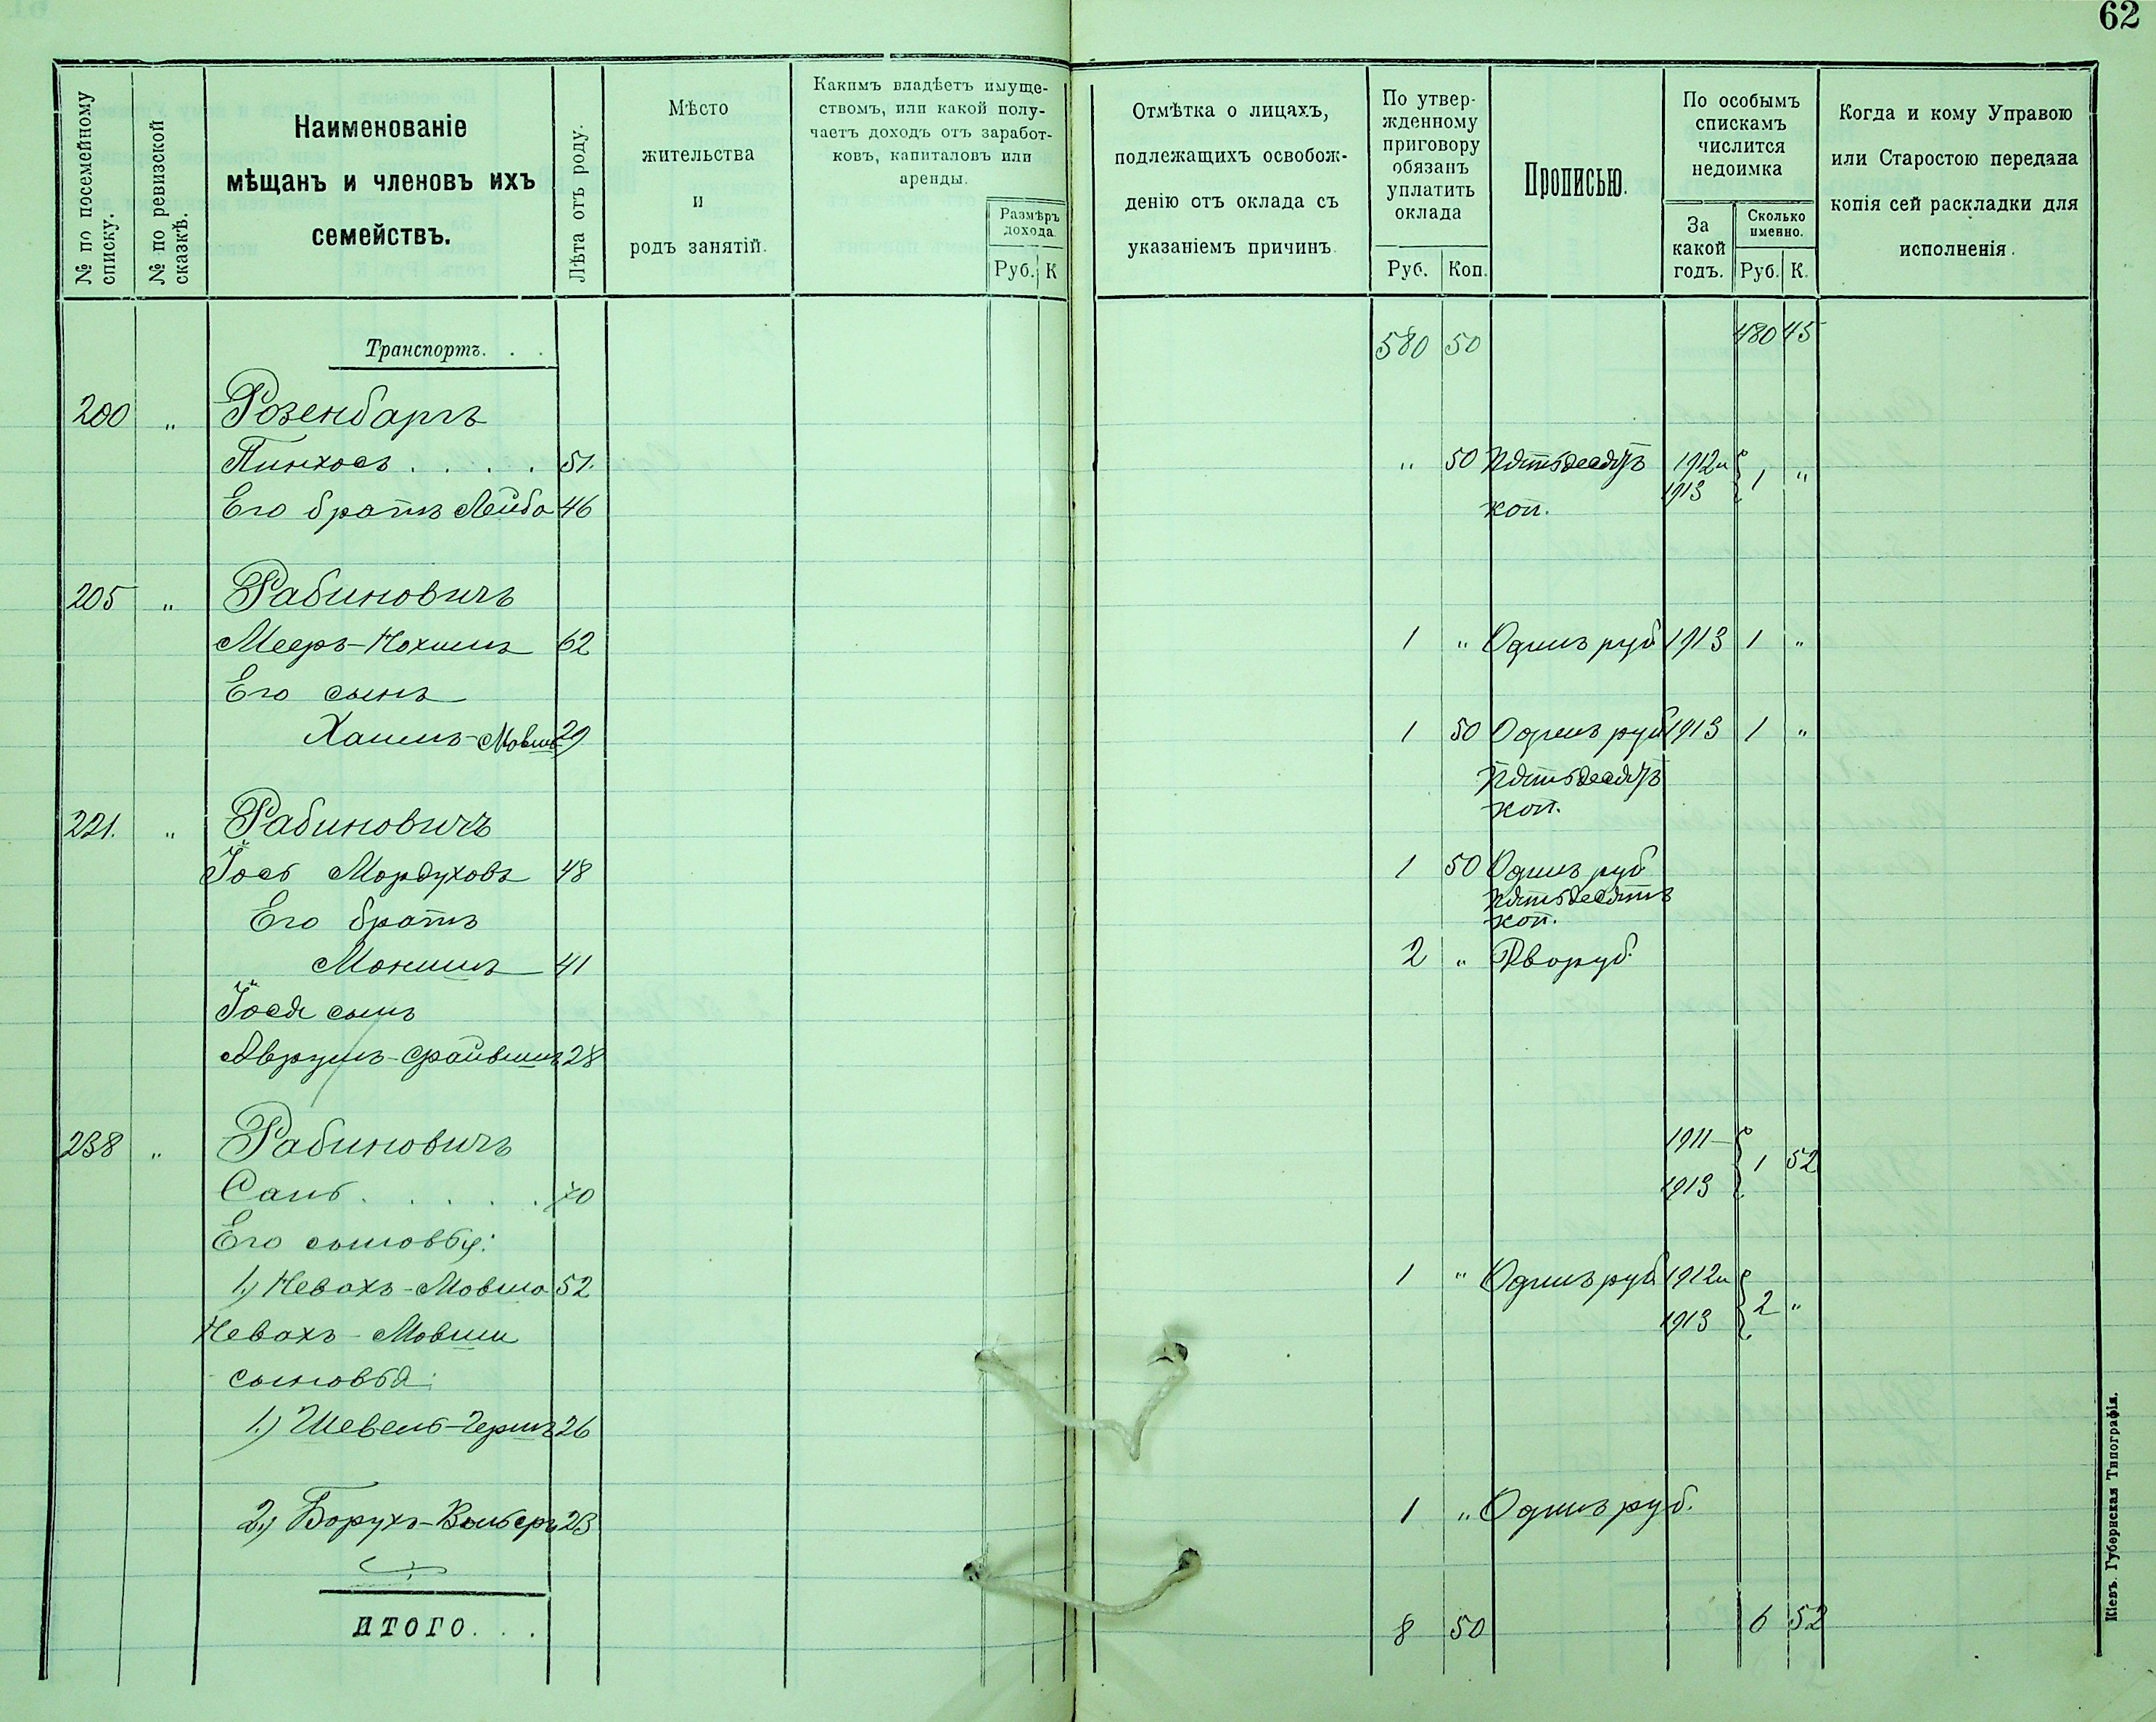 62
№ по посемейному списку.
№ по ревизской сказкѣ.
Наименованіе
мѣщанъ и членовъ ихъ
семействъ.
Лѣта отъ роду.
Мѣсто
жительства
и
родъ занятій.
Какимъ владѣетъ имуще-
ствомъ, или какой полу-
чаетъ доходъ отъ заработ-
ковъ, капиталовъ или
аренды.
Размѣръ
дохода.
Руб. К
Отмѣтка о лицахъ,
подлежащихъ освобож-
денію отъ оклада съ
указаніемъ причинъ.
По утвер-
жденному
приговору
обязанъ
уплатить
оклада
Руб. Коп.
Прописью.
По особымъ
спискамъ
числится
недоимка
За
какой
годъ.
Сколько
именно.
Руб. К.
Когда и кому Управою
или Старостою передана
копія сей раскладки для
исполненія.
Транспортъ. . . 580 50 480 45
200 " Розенбаргъ
Пинхосъ . . . . 51. " 50 Пятьдесятъ 1912 и 1 "
Его братъ Лейба 46 коп. 1913
205 " Рабиновичъ
Мееръ-Нохимъ 62 1 " Одинъ руб 1913 1 "
Его сынъ
Хаимъ-Мовша 29 1 50 Одинъ руб 1913 1 "
Пятьдесятъ
коп.
221. " Рабиновичъ
Іось Мордуховъ 48 1 50 Одинъ руб.
Пятьдесятъ
Его братъ коп.
Монишъ 41 2 " Два руб.
Іося сынъ
Аврумъ-Файвишъ 28
238 " Рабиновичъ 1911- 1 52
Сань . . . . . 70 1913
Его сыновья:
1.) Невахъ-Мовша 52 1 " Одинъ руб. 1912 и 2 "
Невахъ-Мовши 1913
сыновья:
1.) Шевель-Гершъ 26
2.) Борухъ-Вольфъ 23 1 " Одинъ руб.
ИТОГО. . . 8 50 6 52
Кіевъ. Губернская Типографія.